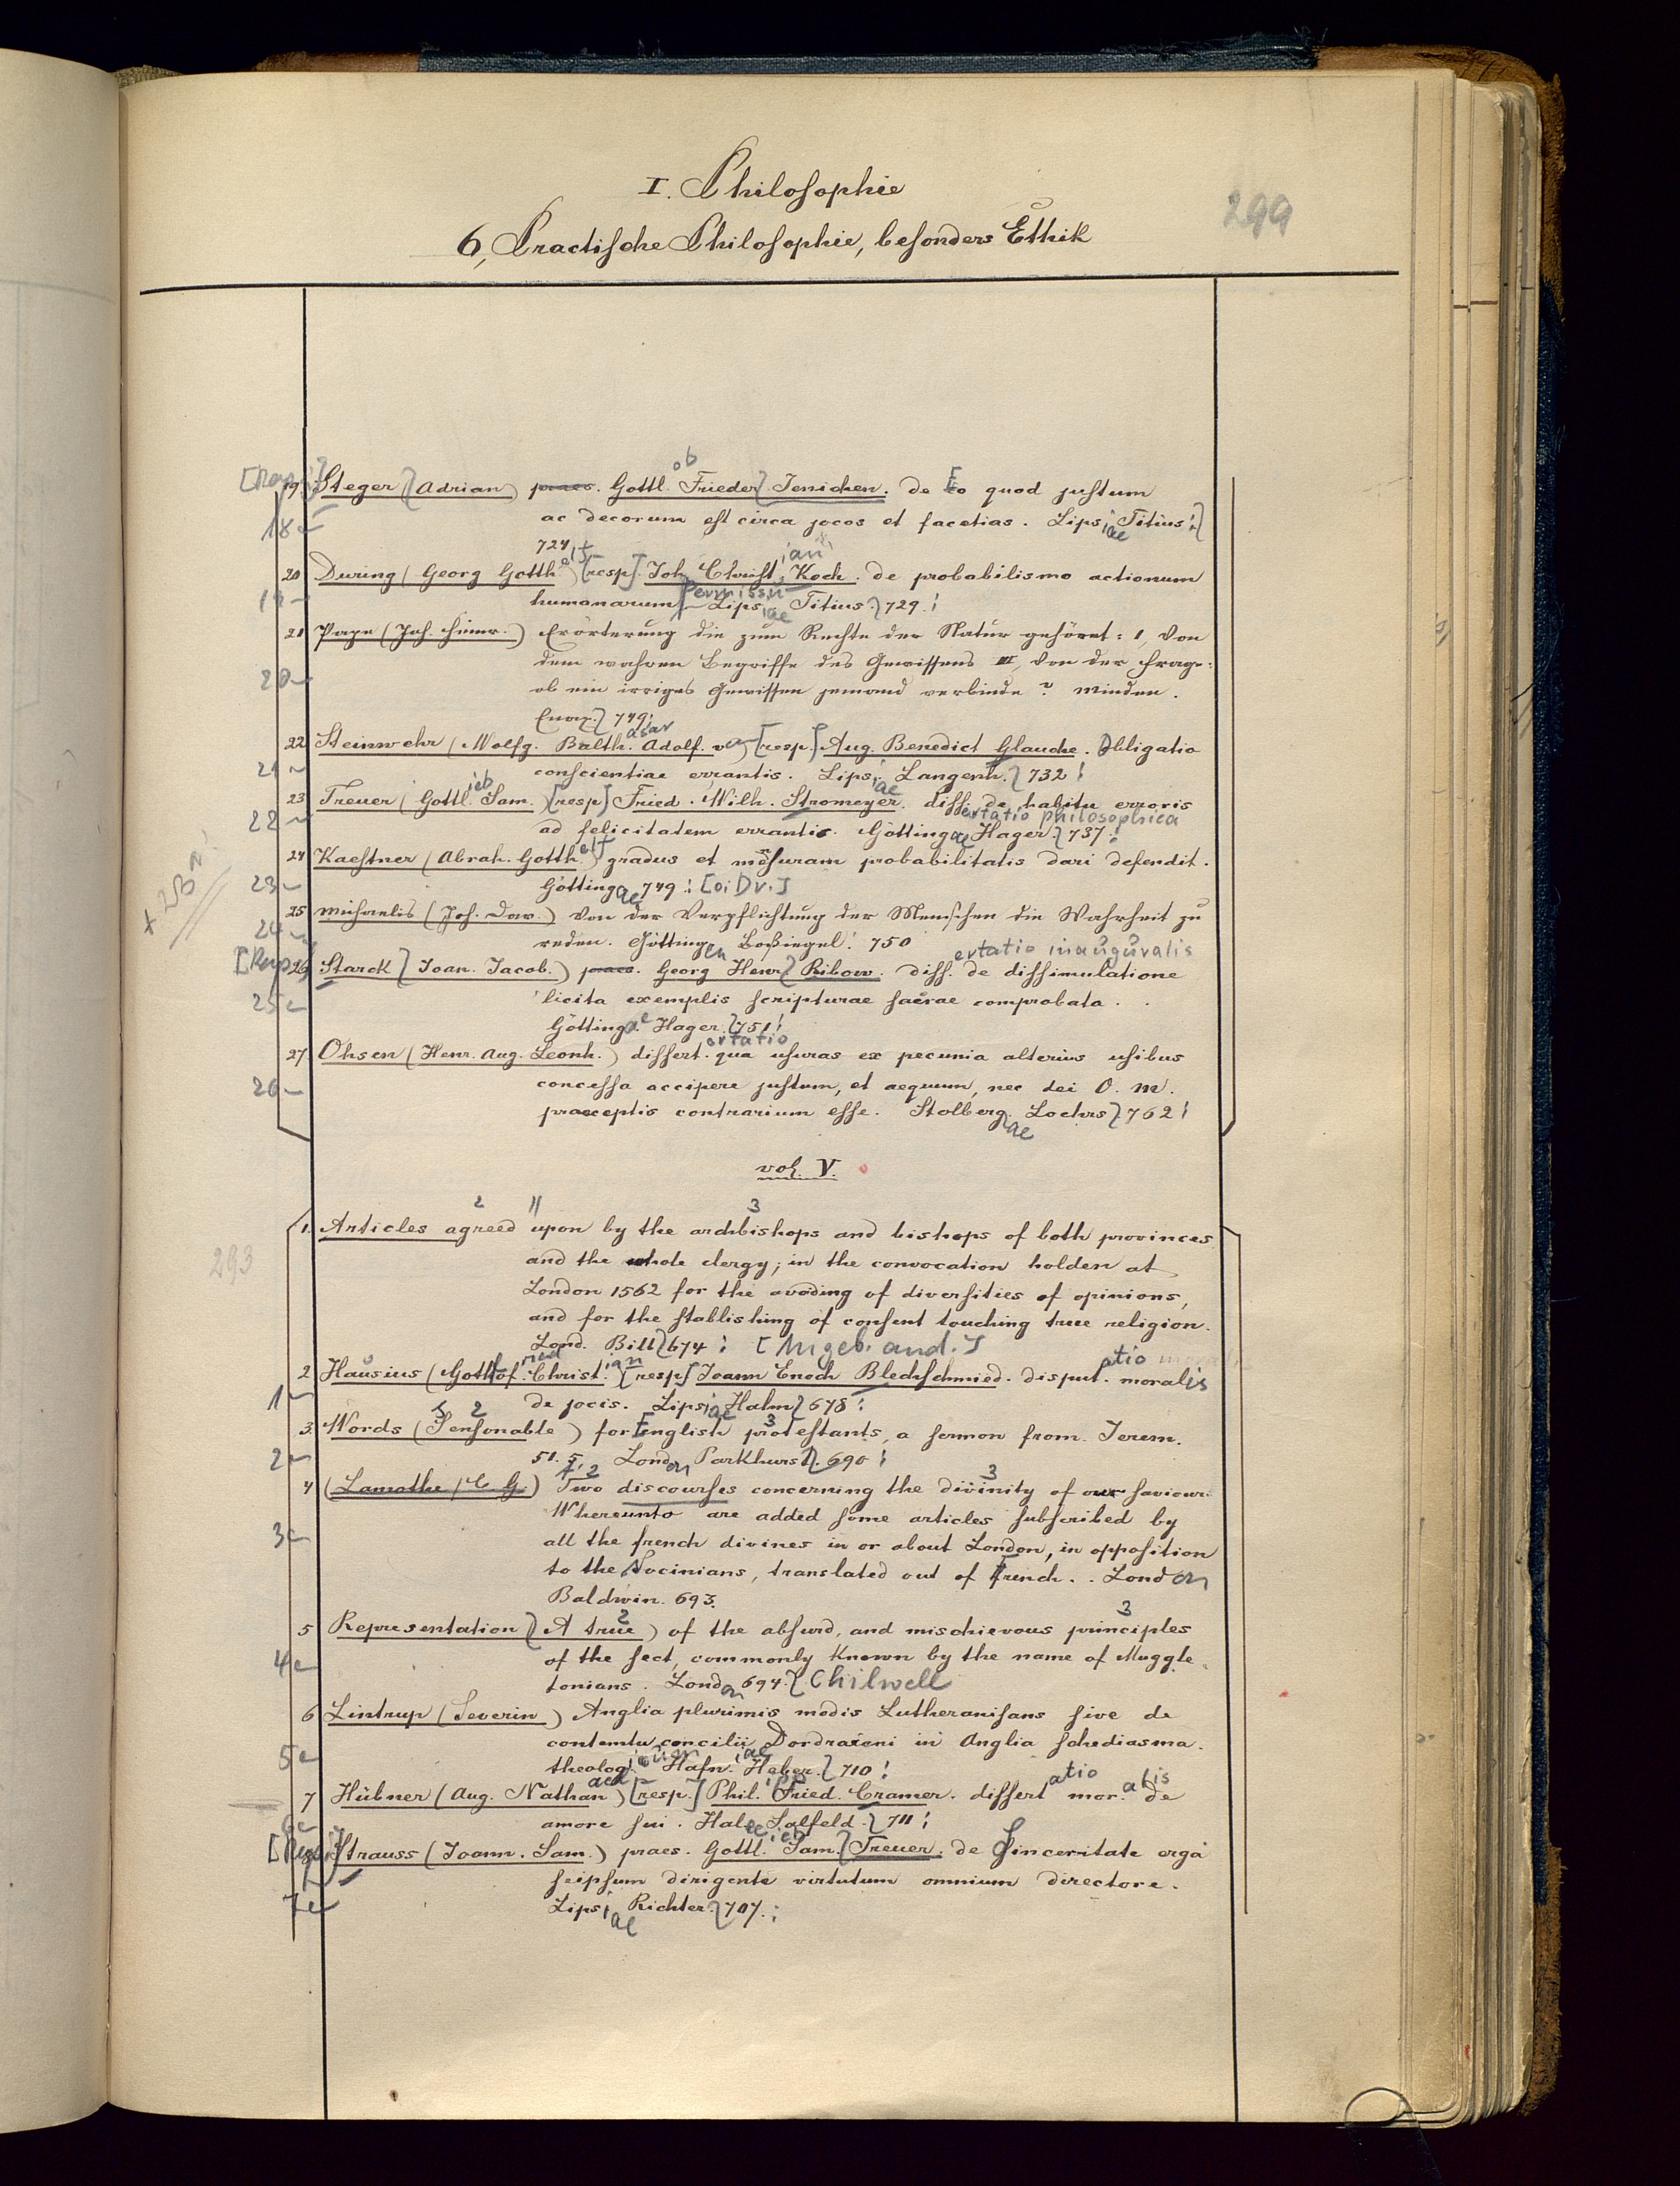 I. Philosophie
299
6, Practische Philosophie, besonders Ethik
19 Steger (Adrian) praes. Gottlob Frieder Jenichen. de Eo quod justum
18
ac decorum est circa jocos et facetias. Lipsiae Titius!
724
20 During (Georg Gotthelf) [resp]. Joh. Christian Koch. de probabilismo actionum
19
humanarum Lipsiae Titius. 729.!
21 Pape (Joh. Heinr.) Erörterung die zum Rechte der Natur gehöret: 1, Von
dem wahren Begriffe des Gewissens III, Von der Frage:
20
ob ein irriges Gewissen jemand verbinde? Minden.
749!
22 Steinwehr (Wolfg. Balthasar Adolf. v.) [resp.] Aug. Benedict Glauche. Obligatio
21
conscientiae errantis. Lipsiae Langenh. 732!
23 Treuer (Gottlieb Sam.) [resp] Fried. Wilh. Stromeyer. dissertatio philosophica de habitu erroris
22
ad felicitatem errantis. Göttingae Hager. 737!
24 Kaestner (Abrah. Gotthelf) gradus et mensuram probabilitatis dari defendit.
23
Göttingae 749! [o. Dr.]
25 Michaelis (Joh. Dav.) Von der Verpflichtung der Menschen die Wahrheit zu
24
reden. Göttingen Boßiegel! 750
[Resp 26 Starck (Joan. Jacob.) praes. Georg Henr. Ribow. dissertatio inauguralis de dissimulatione
25
licita exemplis scripturae sacrae comprobata.
Göttingae Hager. 751!
27 Ohsen (Henr. Aug. Leonh.) dissertatio qua usuras ex pecunia alterius usibus
26
concessa accipere justum, et aequum, nec dei O. M.
praeceptis contrarium esse. Stolbergae Lochrs 762!
vol. V.
1. Articles agreed upon by the archbishops and bishops of both provinces
293
and the whole clergy; in the convocation holden at
London 1562 for the avoding of diversities of opinions,
and for the stablishing of consent touching true religion.
Lond. Bill 674! [Angeb. and.]
2 Hausius (Gottlof. Christian) [resp] Joann Enoch Blechschmied. disputatio moralis
1
de jocis. Lipsiae Hahn 678!
3. Words (Sensonable) for English protestants, a sermon from Jerem.
2
51. 5, London Parkhurst. 690!
4 (Lamothe (C. G.) Two discourses concerning the divinity of our saviour.
Whereunto are added some articles subscribed by
3
all the french divines in or about London, in opposition
to the Socinians, translated out of French. London
Baldwin. 693.
5 Representation (A true) of the absurd, and mischievous principles
4
of the sect, commonly known by the name of Muggle
tonians. London 694. Chilwell
6 Lintrup (Severin) Anglia plurimis modis Lutheranisans sive de
contemtu concilii Dordraceni in Anglia schediasma.
5
theolog. Hafniae Heber. 710!
7 Hübner (Aug. Nathanael) [resp.] Phil. Fried. Cramer. dissertatio moralis de
6
amore sui. Halae Salfeld. 711!
8 Strauss (Joann. Sam.) praes. Gottlieb Sam. Treuer. de Sinceritate erga
seipsum dirigente virtutum omnium directore.
7
Lipsiae Richter. 707.!